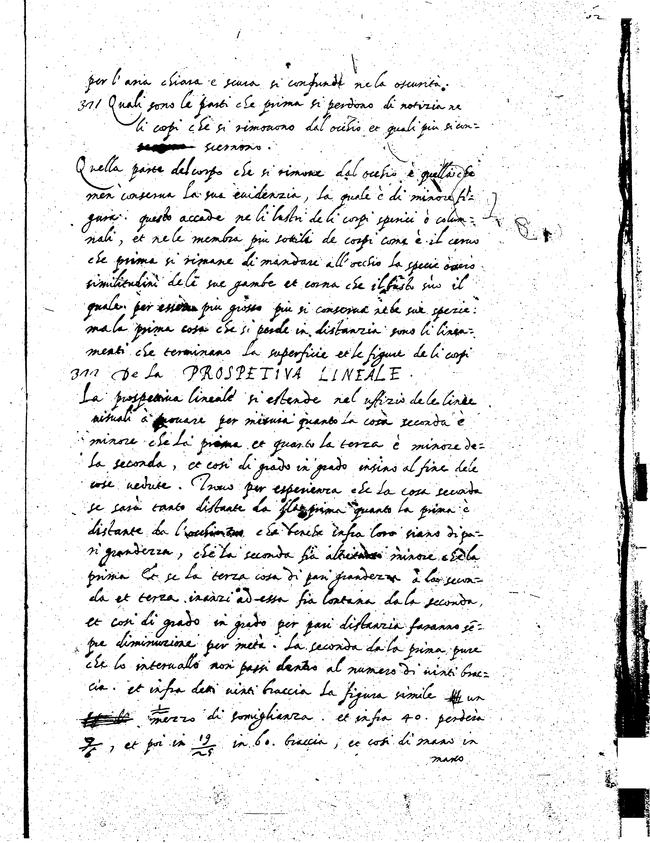 per l'aria chiara e scura si confundē ne la oscurità.
311 Quali sono le parti che prima si perdono di notizia ne
li corpi che si rimouono dal occhio et quali piu si con=
seruono.
Quella parte del corpo che si rimoue dal occhio è quella che
men conserua la sua euidenzia, la quale è di minore fi=
gura. questo accade ne li lustri de li corpi sperici ò colun=
nali, et ne le membra piu sottili de corpi come è il ceruo
che prima si rimane di mandare all'occhio la specie ouero
similitudini dele sue gambe et corna che il busto suo il
quale per essere piu grosso piu si conserua nele sue spezie:
ma la prima cosa che si perde in distanzia sono li linea=
menti che terminano la superficie et le figure de li corpi
312 De La PROSPETIVA LINEALE.
La prospetiua lineale si estende nel uffizio de le linee
uisuali à prouare per misura quanto la cosa seconda è
minore che la prima et quanto la terza è minore de=
la seconda, et cosi di grado in grado insino al fine dele
cose uedute. Trouo per esperienza che la cosa seconda
se sarà tanto distante da la prima quanto la prima è
distante da l'occhio che benche infra loro siano di pa=
ri grandezza, che la seconda fia minore che la
prima Et se la terza cosa di pari grandezza à la secon=
da et terza inanzi ad essa fia lontana dala seconda,
et cosi di grado in grado per pari distanzia faranno sē=
pre diminuzione per metà. La seconda da la prima pure
che lo interuallo non passi dentro al numero di uinti brac=
cia. et infra detti uinti braccia la figura simile un
mezzo di somiglianza. et infra 40. perderà
, et poi in 19/25 in 60. braccia, et cosi di mano in
mano